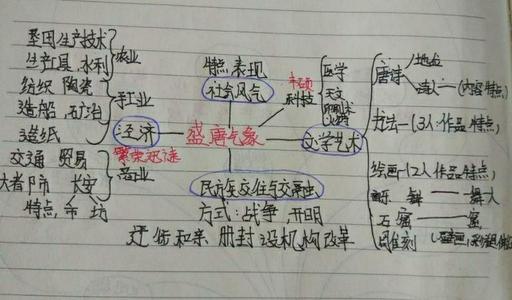 垦田生产技术
生产工具、水利
农业
纺织 陶瓷
造船 石冶
造纸
手工业
经济
繁荣迅速
交通 贸易
大者阝市 长安
特点 市 坊
商业
特点、表现
社会风气
盛唐气象
丰硕
科技
医学
天文
民族交往与交融
方式:战争,开明
迁徙和亲 册封 设机构改革
文学艺术
唐诗
地位
诗人—(内容特点)
书法—(3人:作品 特点)
绘画—(2人作品特点)
音乐 舞——舞人
石窟——窟
雕刻